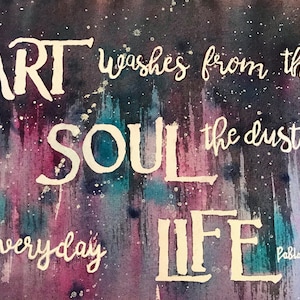 ART washes from th
SOUL the dust
veryday LIFE
Pabl